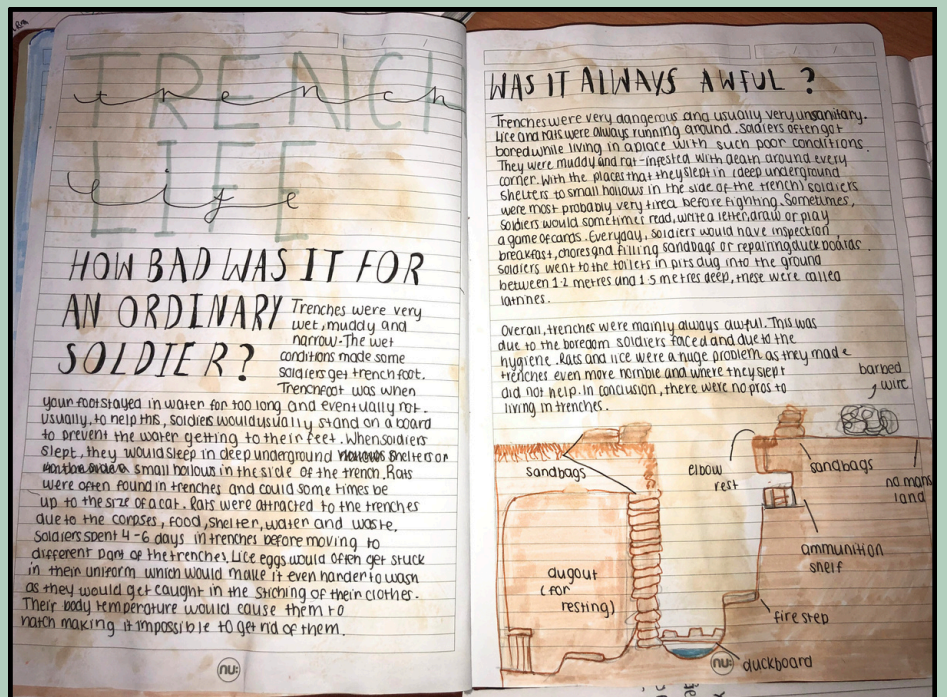 TRENCH
trench
LIFE
life
HOW BAD WAS IT FOR
AN ORDINARY
SOLDIER?
Trenches were very
wet, muddy and
narrow. The wet
conditions made some
soldiers get trench foot.
Trenchfoot was when
your foot stayed in water for too long and eventually rot.
Usually, to help this, soldiers would usually stand on a board
to prevent the water getting to their feet. When soldiers
slept, they would sleep in deep underground shelters or
small hollows in the side of the trench. Rats
were often found in trenches and could some times be
up to the size of a cat. Rats were attracted to the trenches
due to the corpses, food, shelter, water and waste.
Soldiers spent 4-6 days in trenches before moving to
different part of the trenches. Lice eggs would often get stuck
in their uniform which would make it even harder to wash
as they would get caught in the stiching of their clothes.
Their body temperature would cause them to
hatch making it impossible to get rid of them.
nu:
WAS IT ALWAYS AWFUL?
Trenches were very dangerous and usually very unsanitary.
Lice and rats were always running around. Soldiers often got
bored while living in a place with such poor conditions.
They were muddy and rat-infested with death around every
corner. With the places that they slept in (deep underground
shelters to small hollows in the side of the trench) soldiers
were most probably very tired before fighting. Sometimes,
soldiers would sometimes read, write a letter, draw or play
a game of cards. Everyday, soldiers would have inspection,
breakfast, chores and filling sandbags or repairing duck boards.
Soldiers went to the toilets in pits dug into the ground
between 1.2 metres and 1.5 metres deep, these were called
latrines.
Overall, trenches were mainly always awful. This was
due to the boredom soldiers faced and due to the
hygiene. Rats and lice were a huge problem as they made
trenches even more horrible and where they slept
did not help. In conclusion, there were no pros to
living in trenches.
barbed
wire
sandbags
elbow
rest
sandbags
no mans
land
ammunition
shelf
dugout
(for
resting)
fire step
duckboard
nu: